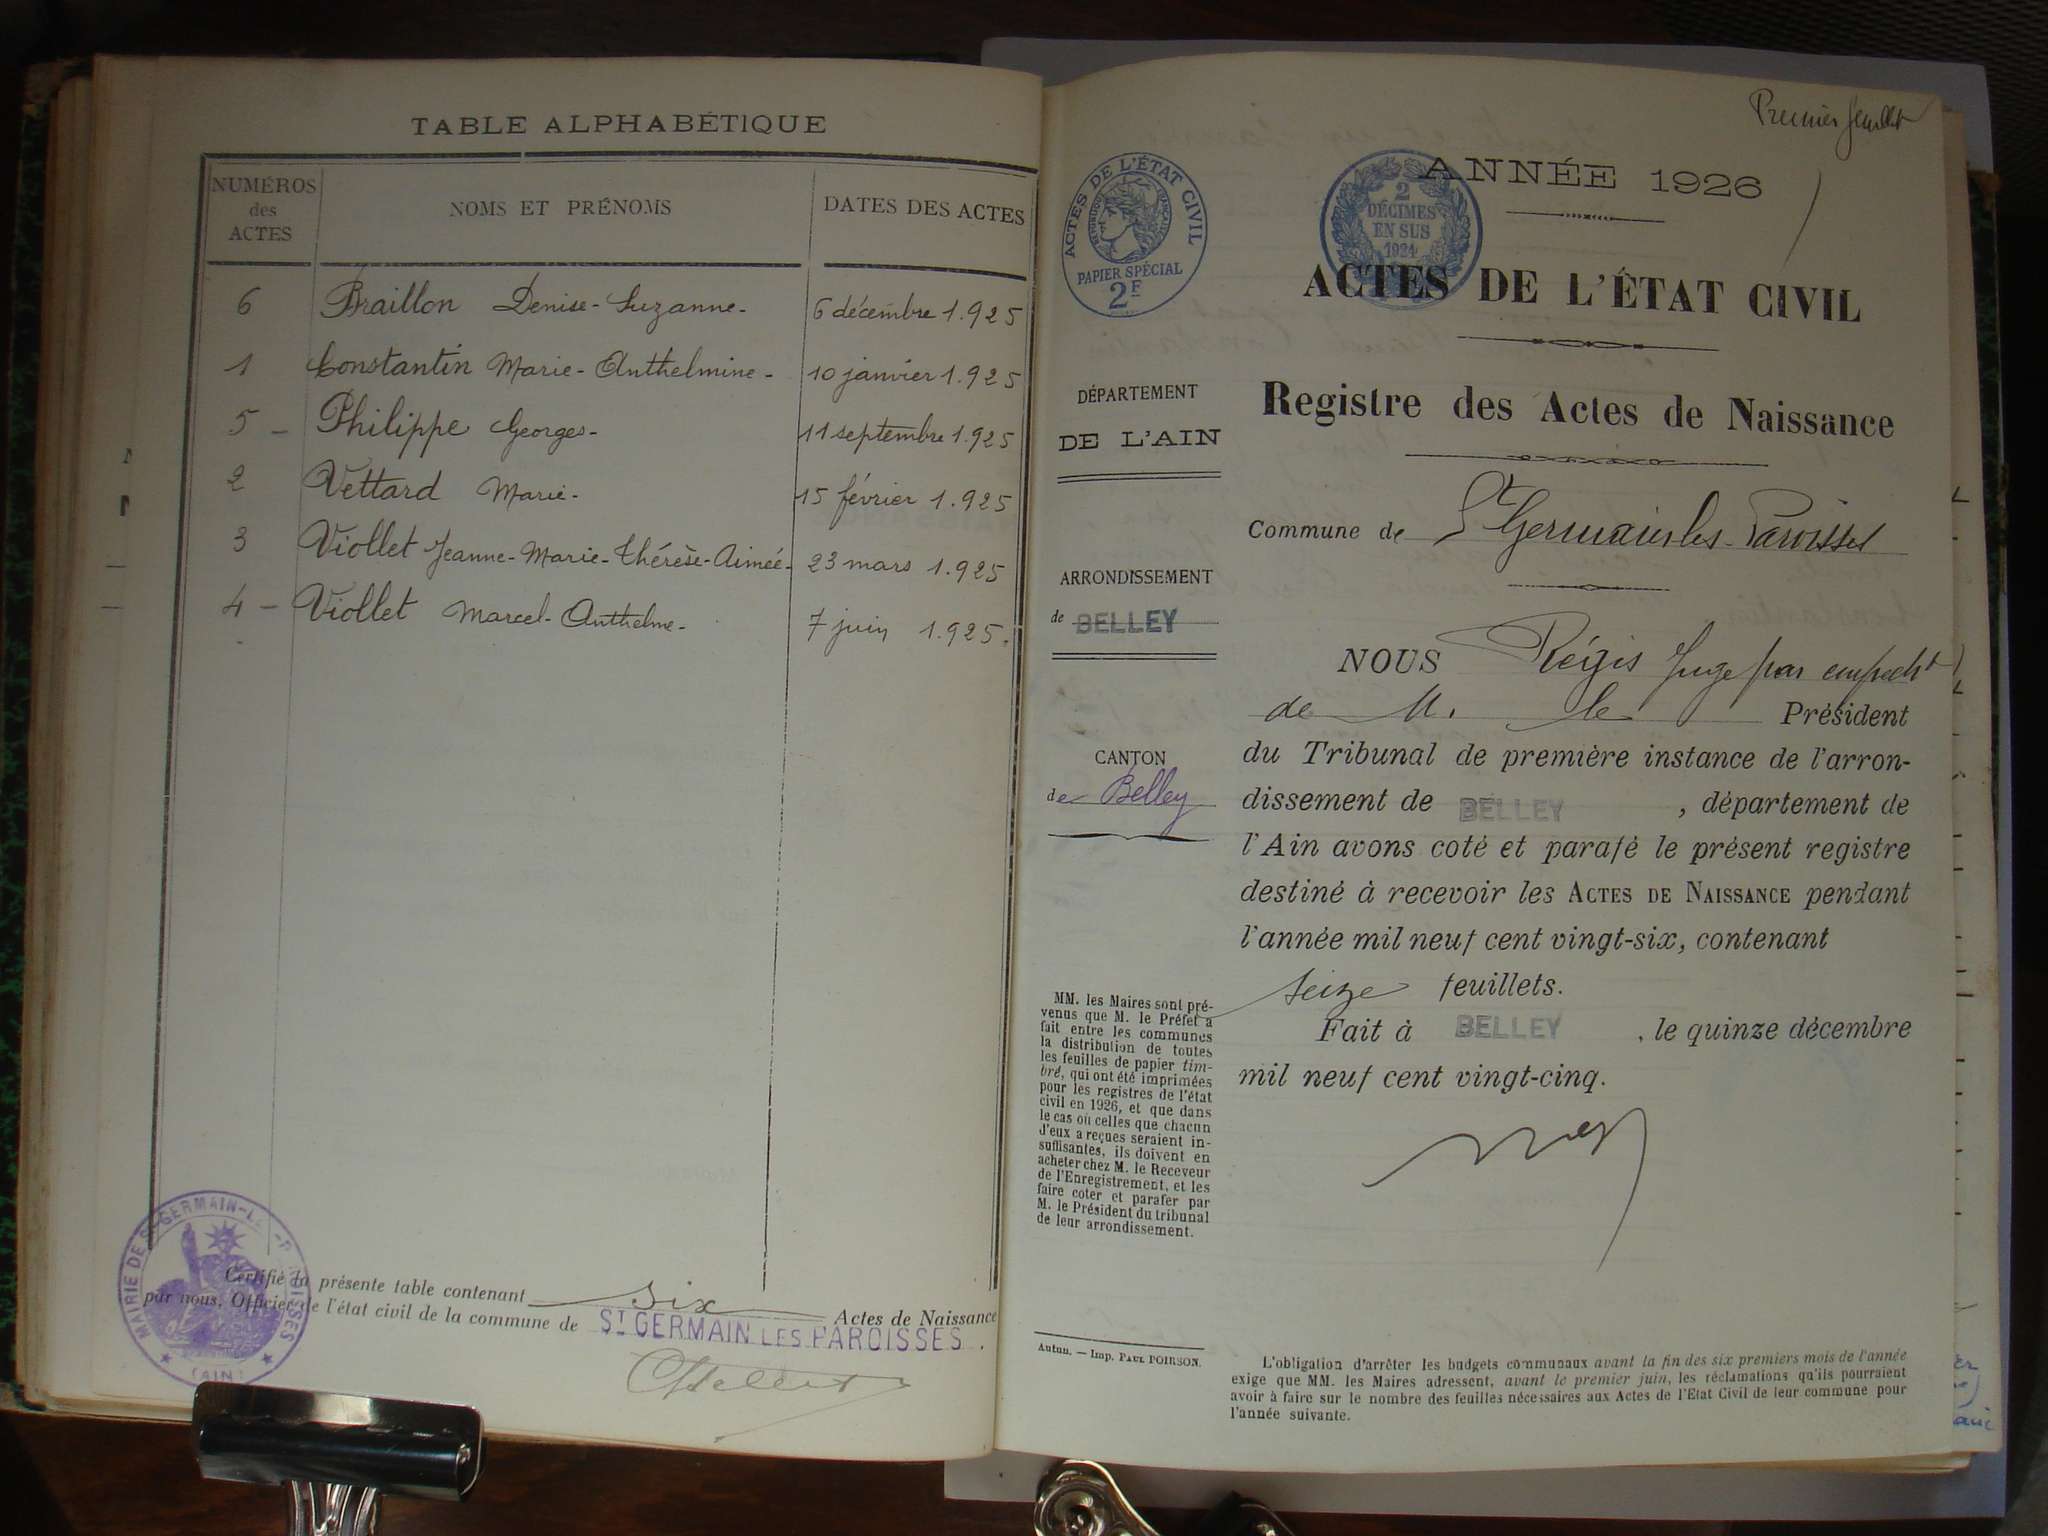 TABLE ALPHABÉTIQUE
NUMÉROS des ACTES
NOMS ET PRÉNOMS
DATES DES ACTES
6 Braillon Denise-Suzanne- 6 décembre 1.925
1 Constantin Marie-Anthelmine- 10 janvier 1.925
5 - Philippe Georges- 11 septembre 1.925
2 Vettard Marie- 15 février 1.925
3 Viollet Jeanne-Marie-Thérèse-Aimée- 23 mars 1.925
4 - Viollet Marcel-Anthelme- 7 juin 1.925.
Certifié la présente table contenant six Actes de Naissance
par nous, Officier de l'état civil de la commune de ST GERMAIN LES PAROISSES.
MAIRIE DE ST GERMAIN-LES-PAROISSES
(AIN)
Premier feuillet
ACTES DE L'ÉTAT CIVIL
RÉPUBLIQUE FRANÇAISE
PAPIER SPÉCIAL
2F
2
DÉCIMES
EN SUS
1924
ANNÉE 1926
ACTES DE L'ÉTAT CIVIL
Registre des Actes de Naissance
Commune de St Germain les Paroisses
DÉPARTEMENT
DE L'AIN
ARRONDISSEMENT
de BELLEY
CANTON
de Belley
NOUS Régis Juge par empecht
de M. le Président
du Tribunal de première instance de l'arron-
dissement de BELLEY, département de
l'Ain avons coté et parafé le présent registre
destiné à recevoir les ACTES DE NAISSANCE pendant
l'année mil neuf cent vingt-six, contenant
seize feuillets.
Fait à BELLEY, le quinze décembre
mil neuf cent vingt-cinq.
MM. les Maires sont pré-
venus que M. le Préfet a
fait entre les communes
la distribution de toutes
les feuilles de papier tim-
bré, qui ont été imprimées
pour les registres de l'état
civil en 1926, et que dans
le cas où celles que chacun
d'eux a reçues seraient in-
suffisantes, ils doivent en
acheter chez M. le Receveur
de l'Enregistrement, et les
faire coter et parafer par
M. le Président du tribunal
de leur arrondissement.
Autun. — Imp. PAUL POIRSON.
L'obligation d'arrêter les budgets communaux avant la fin des six premiers mois de l'année
exige que MM. les Maires adressent, avant le premier juin, les réclamations qu'ils pourraient
avoir à faire sur le nombre des feuilles nécessaires aux Actes de l'Etat Civil de leur commune pour
l'année suivante.